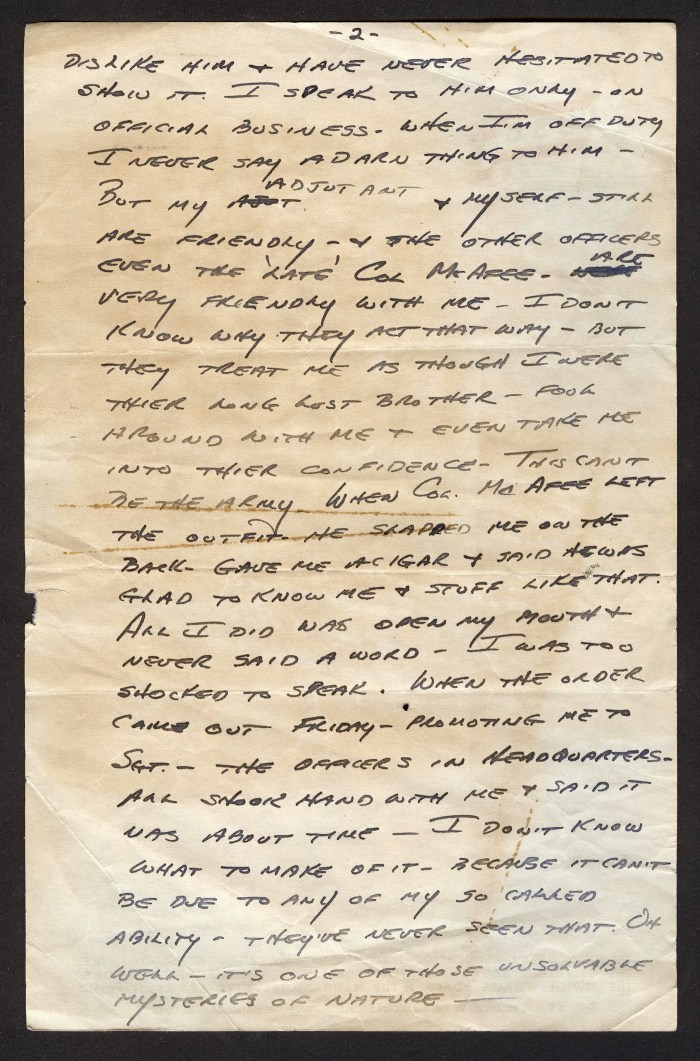 -2-
DISLIKE HIM + HAVE NEVER HESITATED TO
SHOW IT. I SPEAK TO HIM ONLY - ON
OFFICIAL BUSINESS. WHEN I'M OFF DUTY
I NEVER SAY A DARN THING TO HIM -
ADJUTANT
BUT MY & MYSELF - STILL
ARE FRIENDLY - & THE OTHER OFFICERS
ARE
EVEN THE 'LATE' COL MCAFEE -
VERY FRIENDLY WITH ME - I DON'T
KNOW WHY THEY ACT THAT WAY - BUT
THEY TREAT ME AS THOUGH I WERE
THIER LONG LOST BROTHER - FOOL
AROUND WITH ME + EVEN TAKE ME
INTO THIER CONFIDENCE - THIS CAN'T
BE THE ARMY. WHEN COL. MC AFEE LEFT
THE OUTFIT - HE SLAPPED ME ON THE
BACK - GAVE ME A CIGAR & SAID HE WAS
GLAD TO KNOW ME & STUFF LIKE THAT.
ALL I DID WAS OPEN MY MOUTH &
NEVER SAID A WORD - I WAS TOO
SHOCKED TO SPEAK. WHEN THE ORDER
CAME OUT FRIDAY - PROMOTING ME TO
SGT. - THE OFFICERS IN HEADQUARTERS -
ALL SHOOK HAND WITH ME & SAID IT
WAS ABOUT TIME - I DON'T KNOW
WHAT TO MAKE OF IT - BECAUSE IT CAN'T
BE DUE TO ANY OF MY SO CALLED
ABILITY - THEY'VE NEVER SEEN THAT. OH
WELL - IT'S ONE OF THOSE UNSOLVABLE
MYSTERIES OF NATURE -